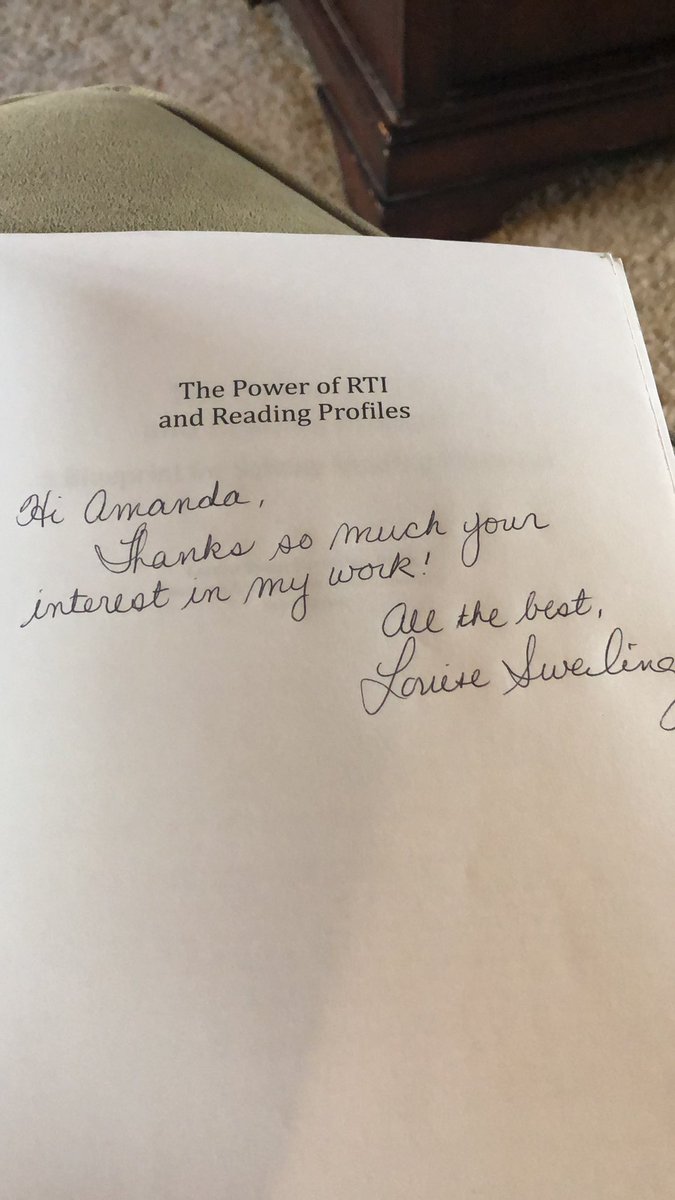 The Power of RTI
and Reading Profiles
Hi Amanda,
Thanks so much your
interest in my work!
All the best,
Louise Swerling